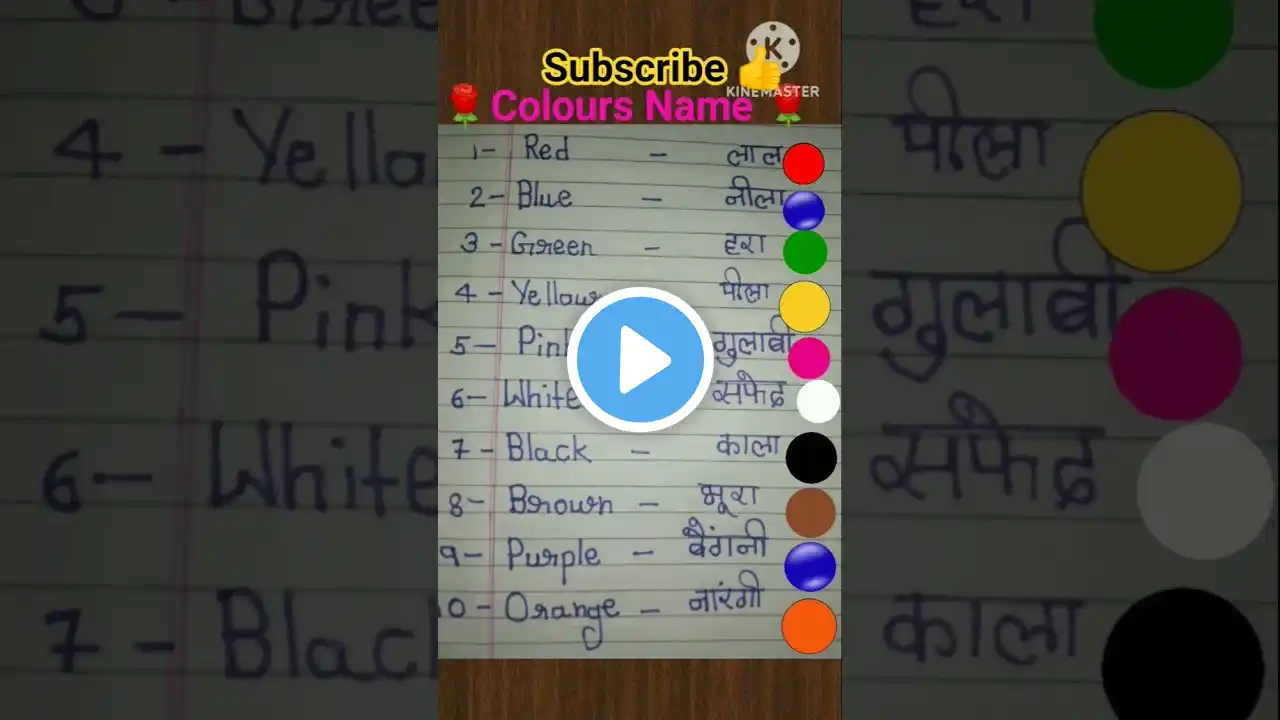 Subscribe
KINEMASTER
Colours Name
1- Red - लाल
2- Blue - नीला
3 - Green - हरा
4 - Yellow पीला
5- Pink गुलाबी
6- White सफेद
7 - Black - काला
8- Brown - भूरा
9- Purple - बैंगनी
10 - Orange - नारंगी
Green हरा
4 - Yello पीला
5- Pink गुलाबी
6- White सफेद
7 - Black काला